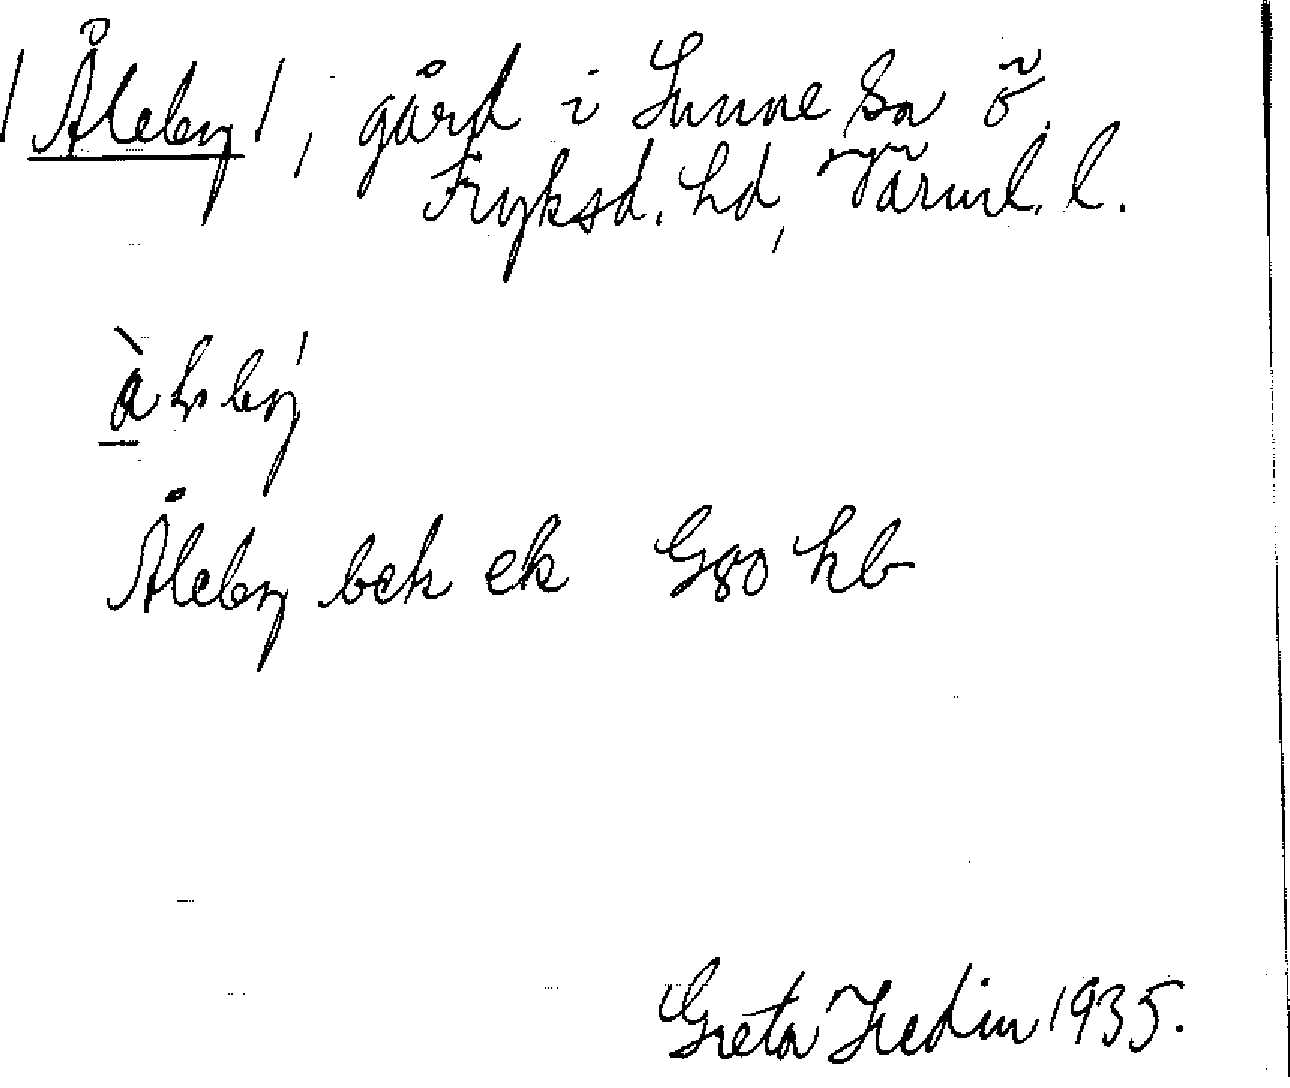 /Åleby/, gård i Sunne sn ö.
Fryksd. hd, Värml. l.
Åleby bek ek G80 hb
Greta Hedin 1935.